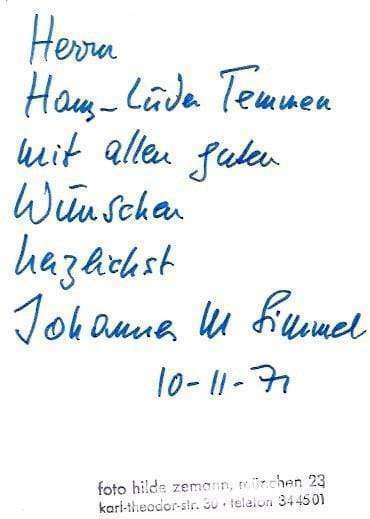 Herrn
Hans-Lüder Temmen
mit allen guten
Wünschen
herzlichst
Johannes M Simmel
10-11-71
foto hilde zemann, münchen 23
karl-theodor-str. 30 · telefon 344501